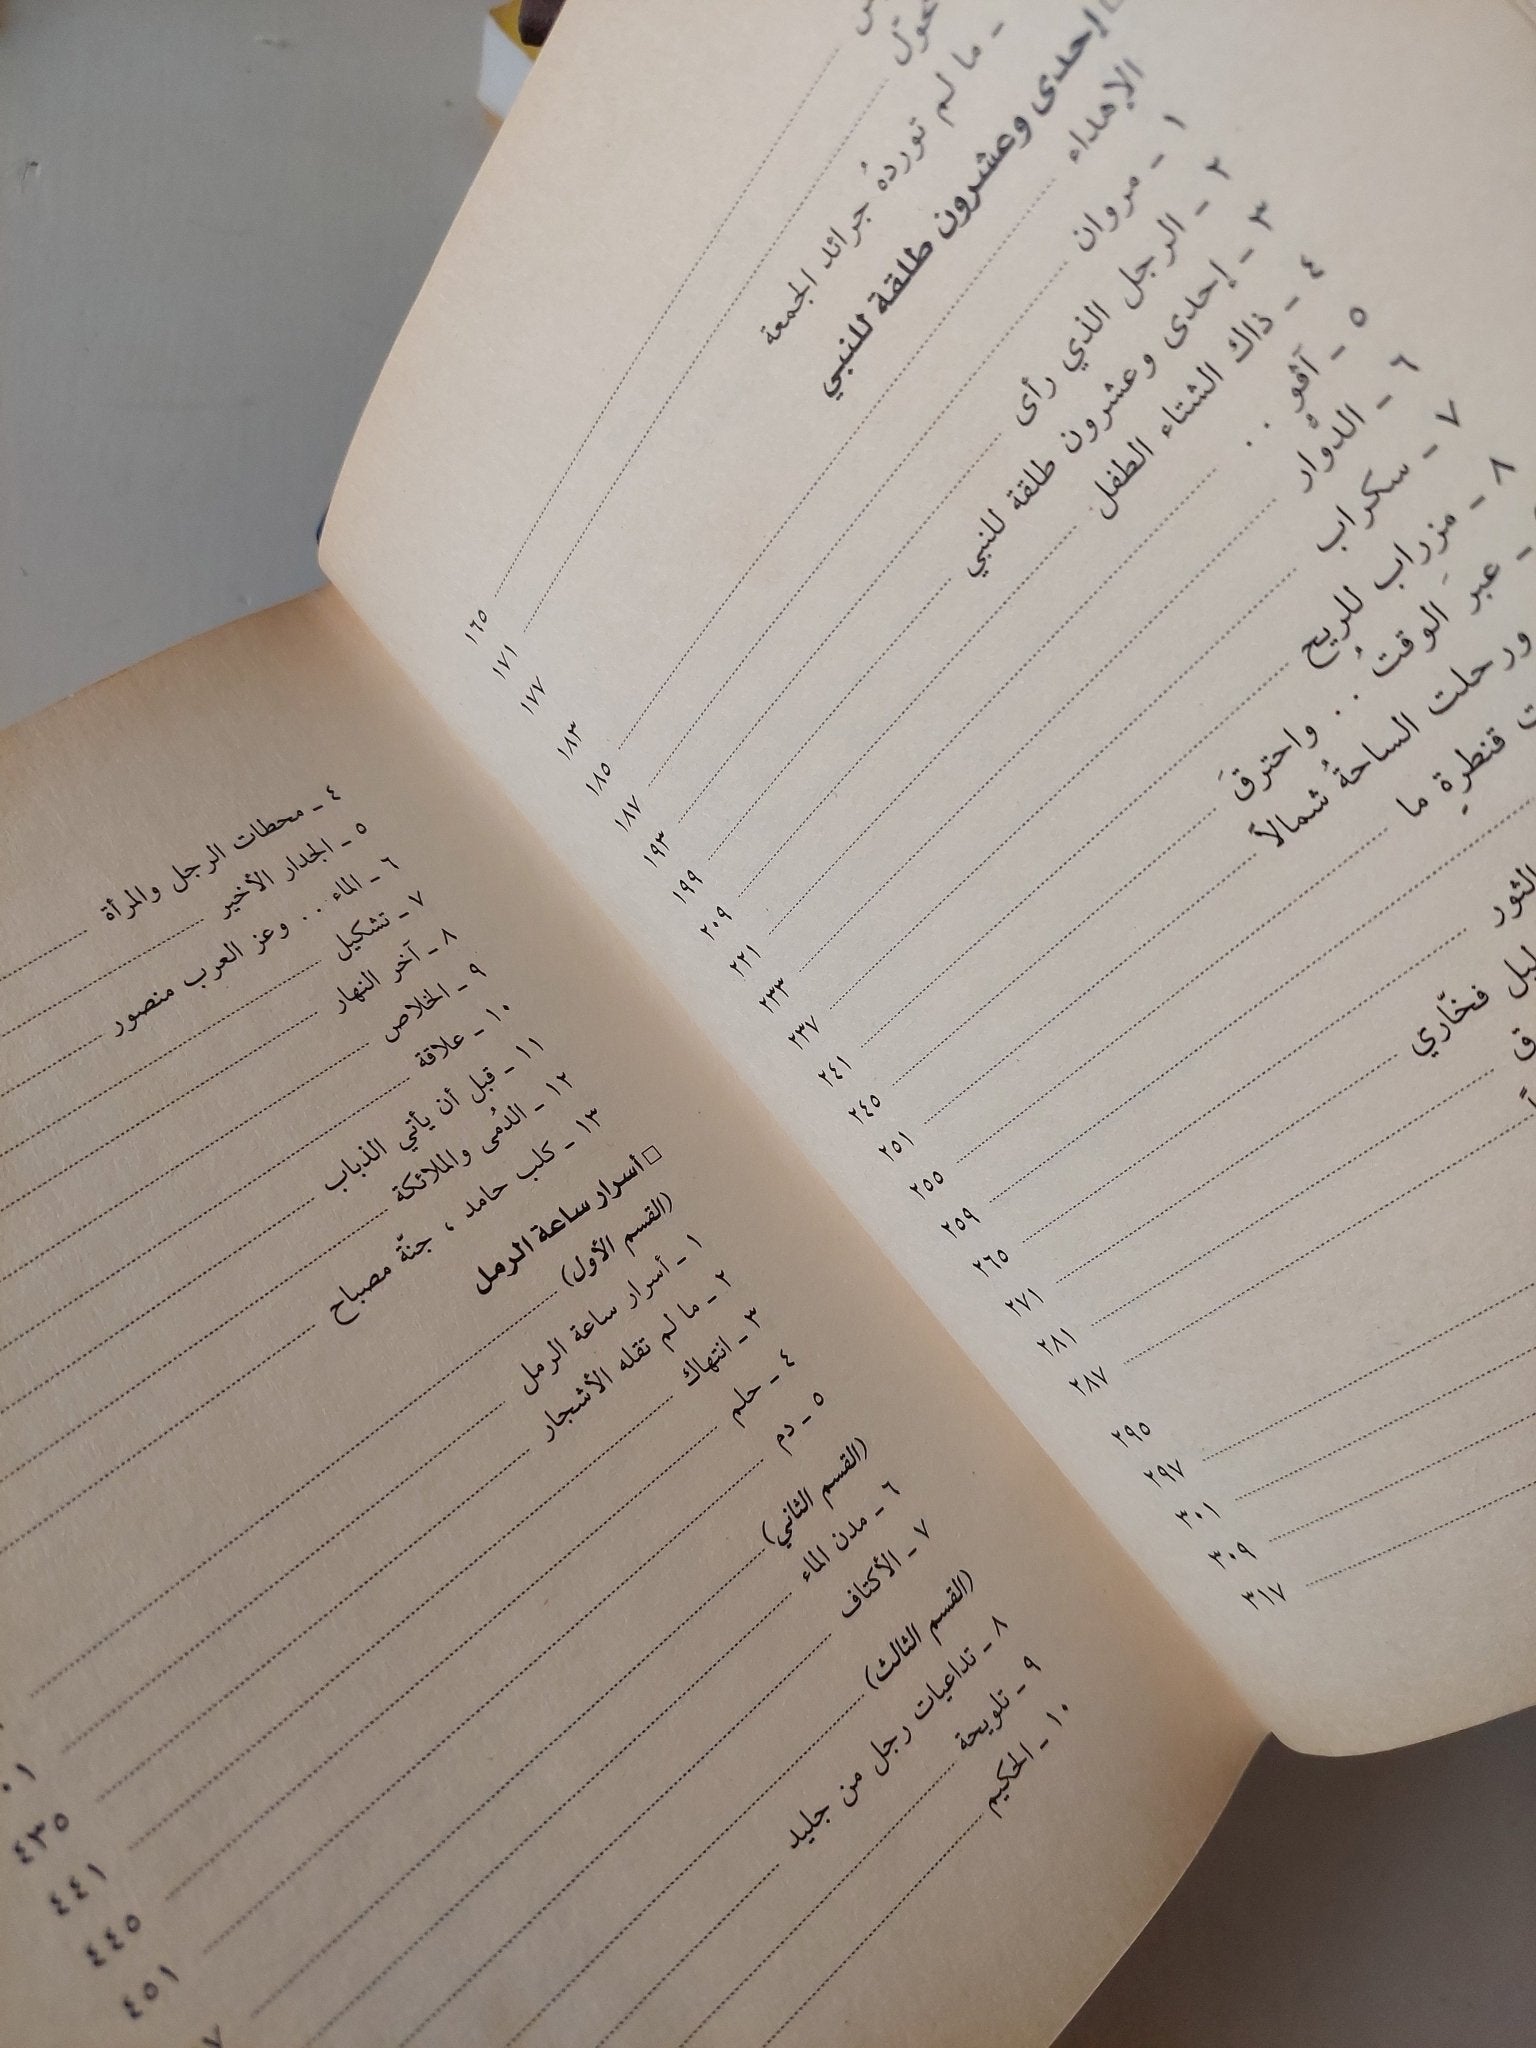 ١٦٥
١٧١
ـ ما لم توردهُ جرائد الجمعة ١٧٧
إحدى وعشرون طلقة للنبي ١٨٣
الإهداء ١٨٥
١ ـ مروان ١٨٧
٢ ـ الرجل الذي رأى ١٩٣
٣ ـ إحدى وعشرون طلقة للنبي ١٩٩
٤ ـ ذاك الشتاء الطفل ٢٠٩
٥ ـ آڤو . . ٢٢١
٦ ـ الدوْار ٢٣٣
٧ ـ سكراب ٢٣٧
٨ ـ مزراب للريح ٢٤١
ـ عبرَ الوقتُ . . واحترقَ ٢٤٥
ورحلت الساحةُ شمالاً ٢٥١
قنطرةٍ ما ٢٥٥
الثور
فخّاري
٢٥٩
٢٦٥
٢٧١
٢٨١
٢٨٧
٢٩٥
٢٩٧
٣٠١
٣٠٩
٣١٧
٤ ـ محطات الرجل والمرأة
٥ ـ الجدار الأخير
٦ ـ الماء . . وعز العرب منصور
٧ ـ تشكيل
٨ ـ آخر النهار
٩ ـ الخلاص
١٠ ـ علاقة
١١ ـ قبل أن يأتي الذباب
١٢ ـ الدُمى والملائكة
١٣ ـ كلب حامد ، جنّة مصباح
□ أسرار ساعة الرمل
(القسم الأول)
١ ـ أسرار ساعة الرمل
٢ ـ ما لم تقله الأشجار
٣ ـ انتهاك
٤ ـ حلم
٥ ـ دم
(القسم الثاني)
٦ ـ مدن الماء
٧ ـ الأكتاف
(القسم الثالث)
٨ ـ تداعيات رجل من جليد
٩ ـ تلويحة
١٠ ـ الحكيم
٤٣٥
٤٤١
٤٤٥
٤٥١